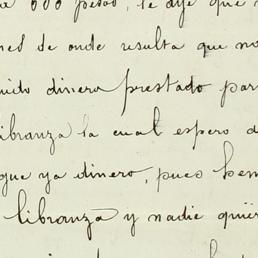 600 pesos, le dije que
de onde resulta que no
dinero prestado par
libranza la cual espero d
que ya dinero, pues hem
libranza y nadie quier